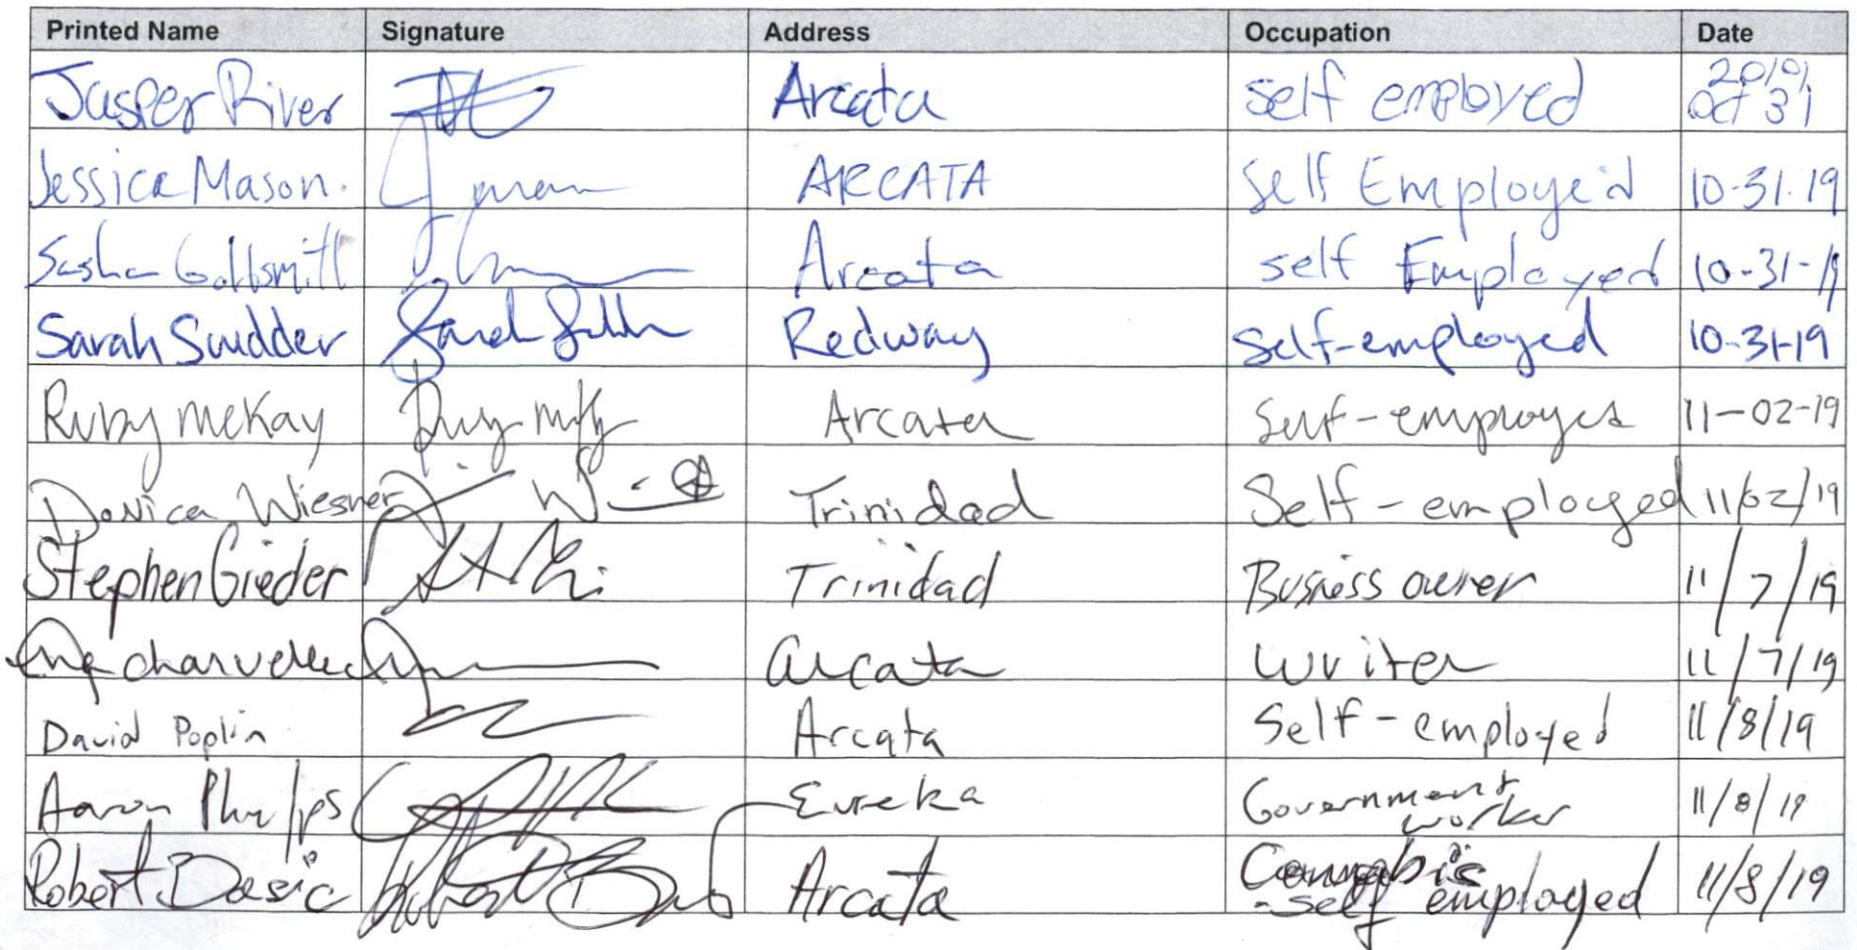 Printed Name Signature Address Occupation Date
Jasper River Arcata self employed 2019 Oct 31
Jessica Mason. ARCATA Self Employed 10-31-19
Sasha Goldsmith Arcata self Employed 10-31-19
Sarah Scudder Redway Self-employed 10-31-19
Ruby McKay Arcata Self-employed 11-02-19
Donica Wiesner Trinidad Self-employed 11/02/19
Stephen Gieder Trinidad Business owner 11/7/19
charvelle Arcata writer 11/7/19
David Poplin Arcata Self-employed 11/8/19
Aaron Phelps Eureka Government worker 11/8/19
Robert Dasic Arcata Cannabis - self employed 11/8/19